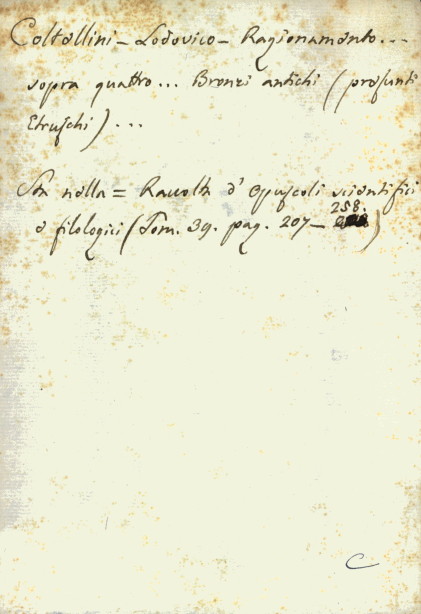 Coltellini - Lodovico - Ragionamento...
sopra quattro... Bronzi antichi (presunti
Etruschi)...
Sta nella = Raccolta d' Opuscoli scientifici
258.
e filologici (Tom. 39. pag. 207-)
C